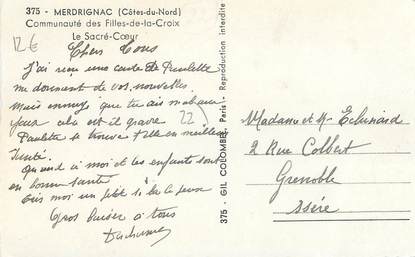 375 - MERDRIGNAC (Côtes-du-Nord)
Communauté des Filles-de-la-Croix
Le Sacré-Cœur
12€
Chers Tous
J'ai reçu une carte de Paulette
me donnant de vos nouvelles
mais ennuyé que tu ais mal aux
yeux cela est il grave
Paulette se trouve t elle en meilleure
santé
Quand à moi et les enfants sont
en bonne santé
Ecris moi un petit si tu le peux
Gros baiser à tous
22
375 - GIL COLOMBET, Paris - Reproduction interdite
Madame et Mr
2 Rue Colbert
Grenoble
Isère